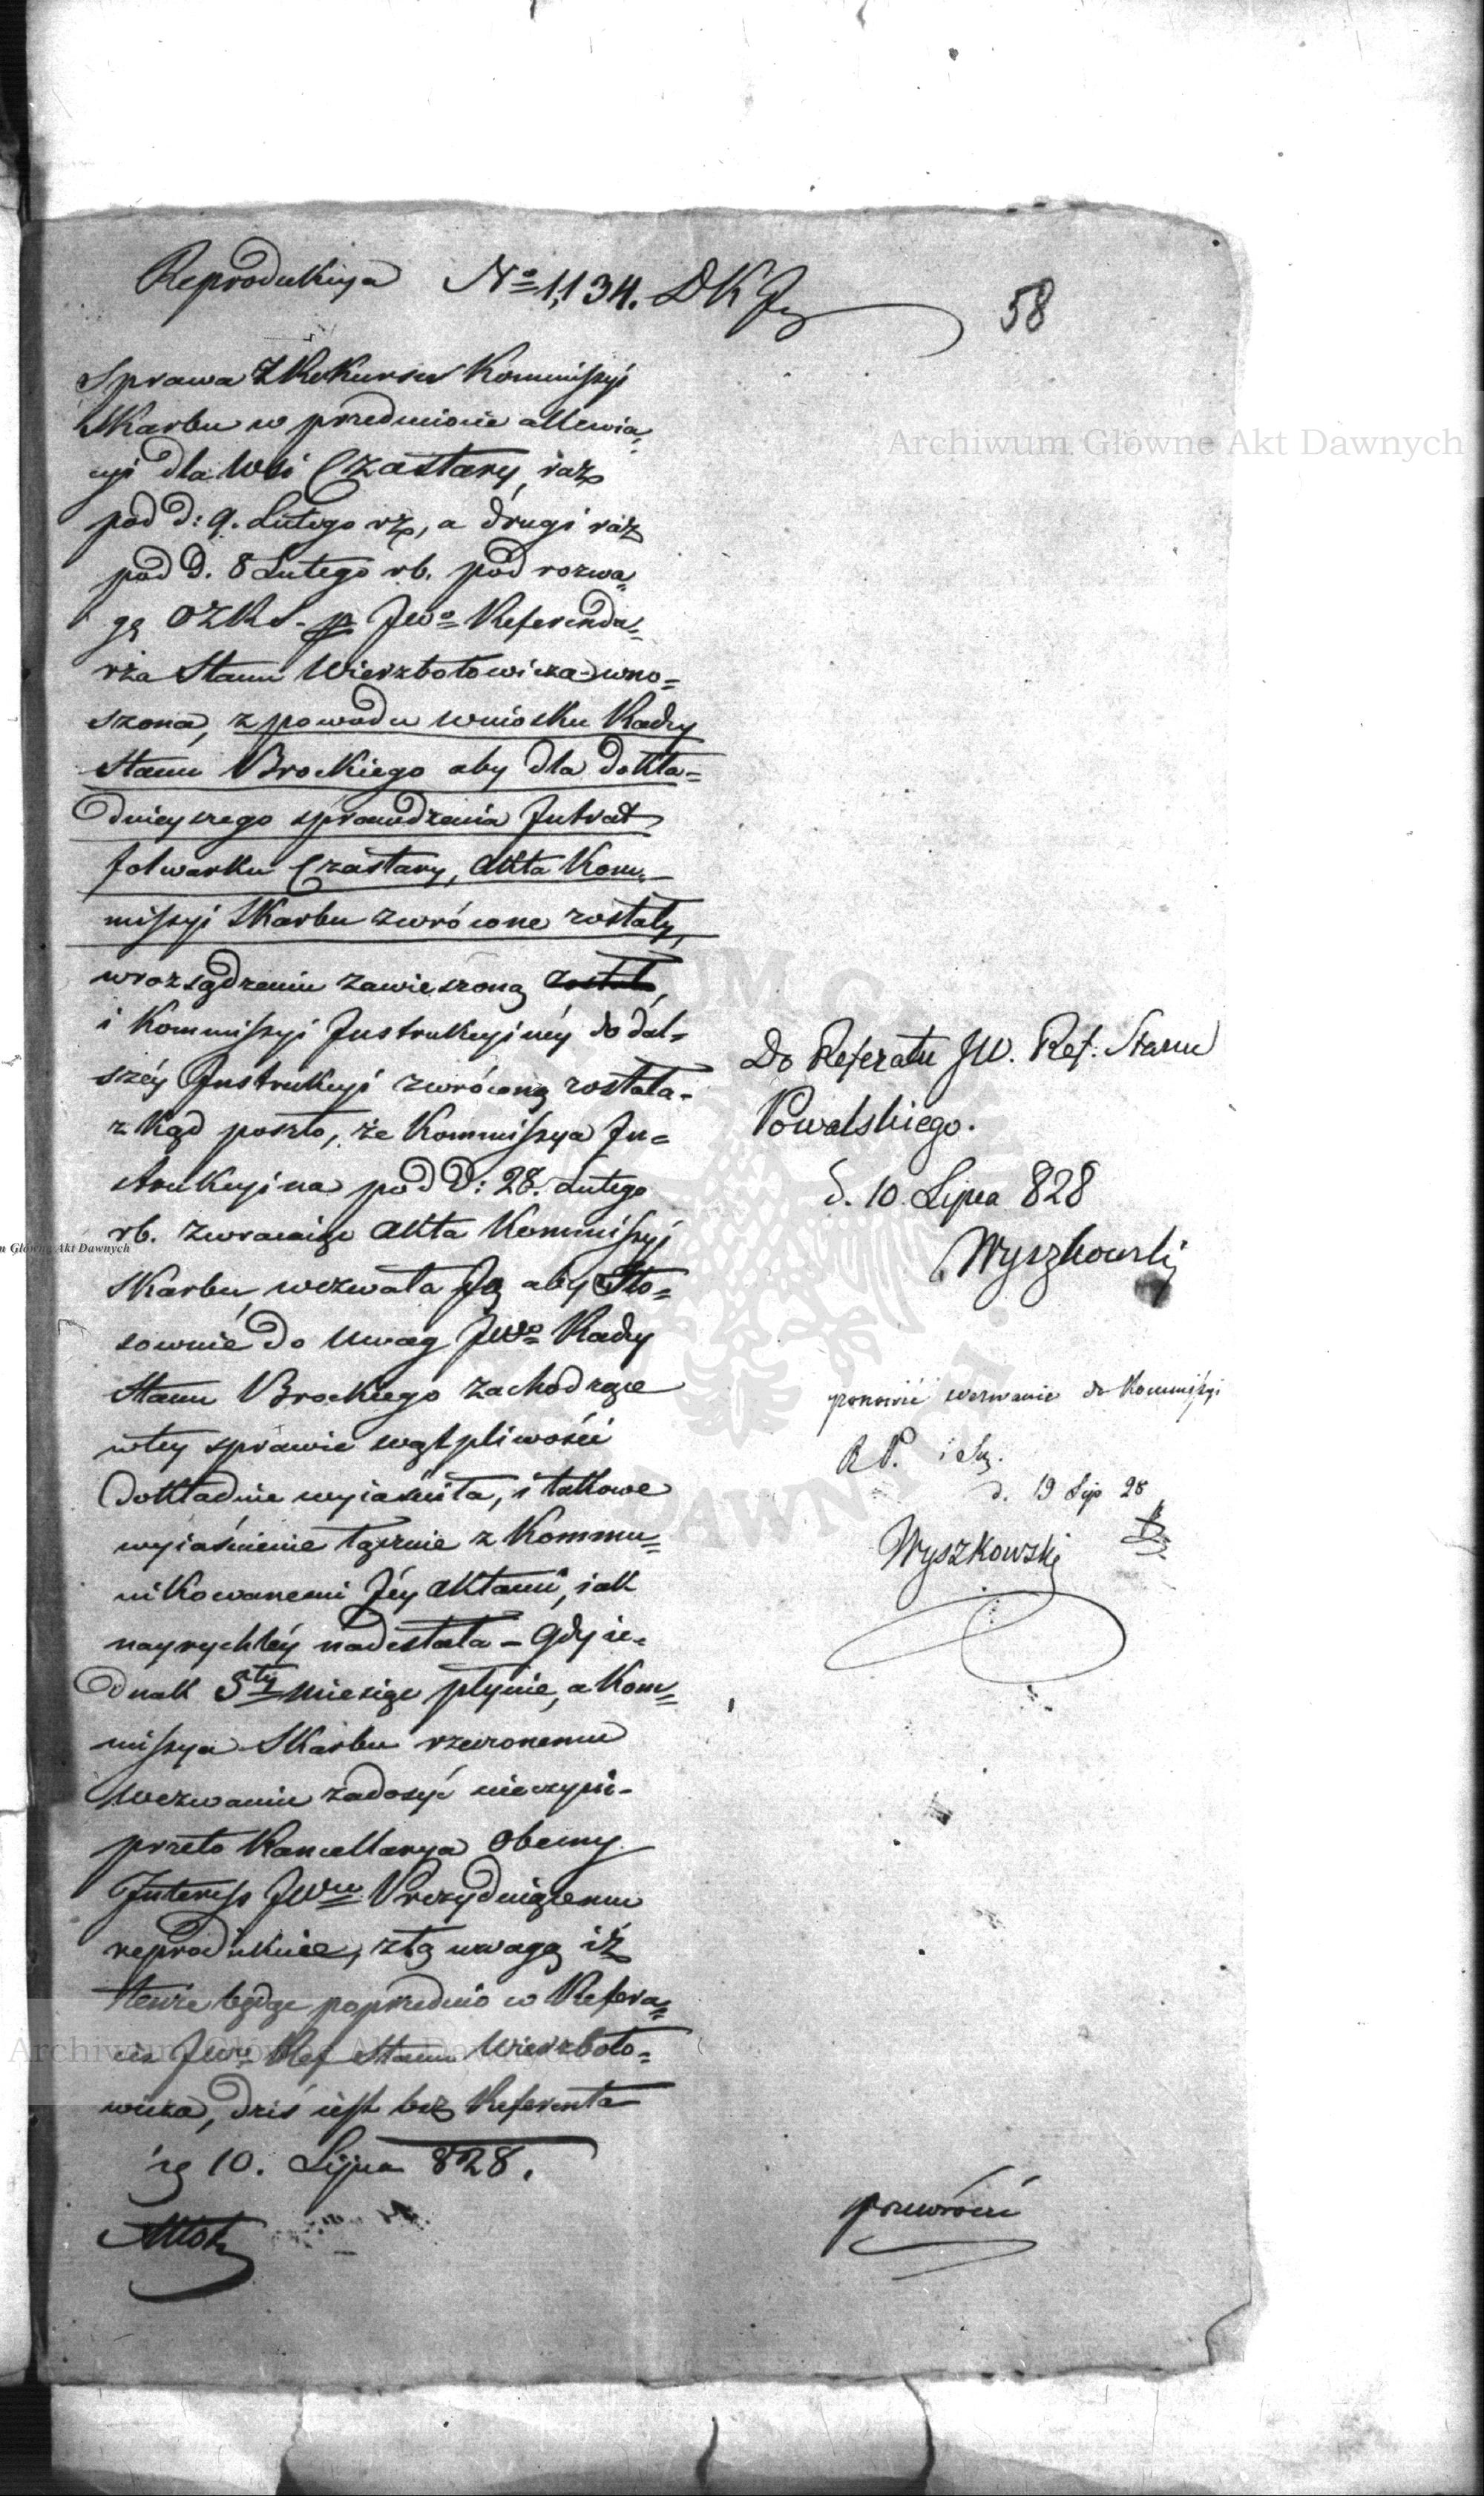 Reprodukcya Nº 1,134. DKJ
58
Sprawa z Rekursu Kommissyi
Skarbu w przedmiocie allewia,,
cyi dla Wsi Czastary, raz
pod d: 9. Lutego rz, a drugi raz
pod d. 8 Lutego rb. pod rozwa,,
gę OZRS. p. JWº Referenda,,
rza Stanu Wierzbołowicza wno=
szona, z powodu wniosku Radcy
Stanu Brockiego aby dla dokła=
dnieyszego sprawdzenia Intrat
folwarku Czastary, akta Kom,,
missyi Skarbu zwrócone zostały,
w rozsądzeniu zawieszoną została,
i Kommissyi Instrukcyiney do dal=
széy Instrukcyi zwróconą została-
zkąd poszło, że Kommissya In=
strukcyina pod d: 28. Lutego
rb. zwracaiąc akta Kommissyi
Skarbu, wezwała Ją aby sto=
sownie do uwag JWº Radcy
Stanu Brockiego zachodzące
w tey sprawie wątpliwości
dokładnie wyiaśniła, i takowe
wyiaśnienie łącznie z Kommu=
nikowanemi Jéy aktami, iak
nayrychléy nadesłała – Gdy ie=
dnak 5ty miesiąc płynie, a Kom=
missya Skarbu rzeczonemu
wezwaniu zadosyć nieczyni-
przeto Kancellarya obecny
Interess JWmu Prezyduiącemu
reprodukuie, z tą uwagą iż
tenże będąc poprzednio w Refera=
cie JWº Ref Stanu Wierzboło=
wicza, dziś iest bez Referenta
10. Lipca 828.
Do Referatu JW. Ref: Stanu
Kowalskiego.
d. 10 Lipca 828
Wyszkowski
ponowić wezwanie do Kommissyi
R P. i Sk.
d. 19 Lip 28
Wyszkowski
przewrócić
Archiwum Główne Akt Dawnych